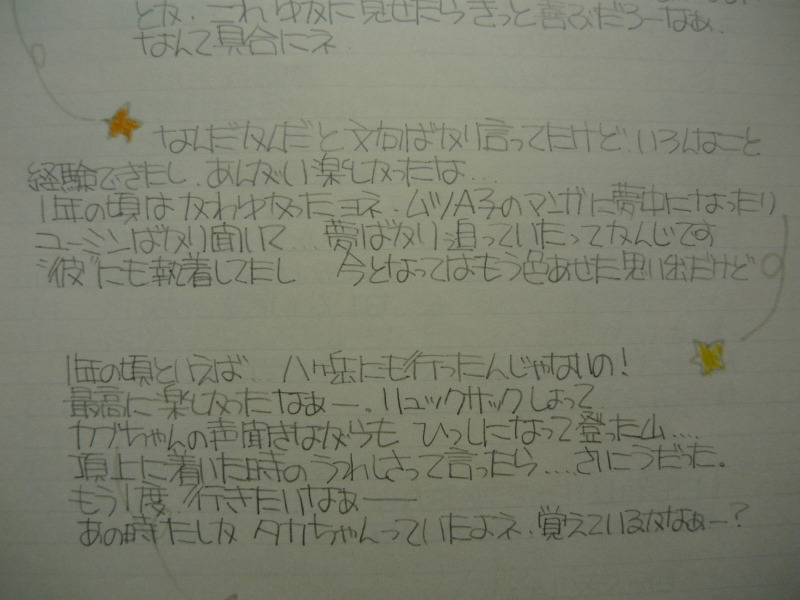 とか、これ ゆかに見せたらきっと喜ぶだろーなぁ、
なんて具合にネ
なんだかんだと文句ばかり言ってたけど、いろんなこと
経験できたし、あんがい楽しかったな…
1年の頃は かわゆかったヨネ、ムツA子のマンガに夢中になったり
ユーミンばかり聞いて… 夢ばかり追っていたってかんじです
"彼"にも執着してたし 今となってはもう色あせた思い出だけど
1年の頃といえば、八ヶ岳にも行ったんじゃないの!
最高に楽しかったなぁー。リュックサックしょって
カブちゃんの声聞きながらも ひっしになって登った山....
頂上に着いた時のうれしさって言ったら....さいこうだった。
もう1度 行きたいなぁ――
あの時たしか タカちゃんっていたよネ、覚えているかなぁー?